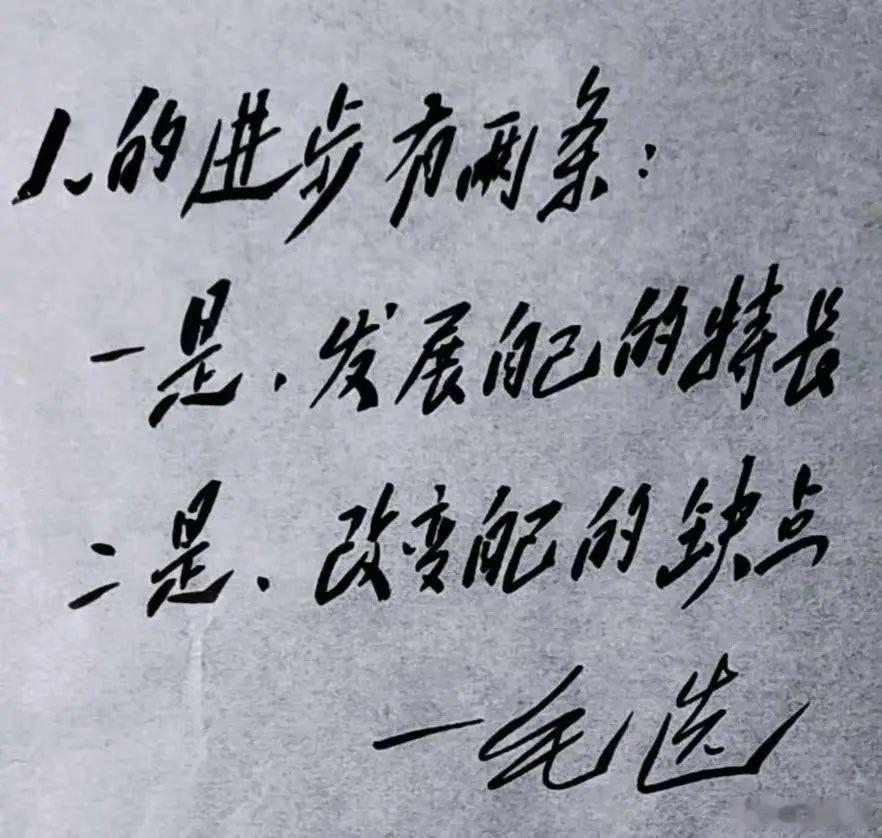 人的进步有两条：
一是、发展自己的特长
二是、改变自己的缺点
一毛选